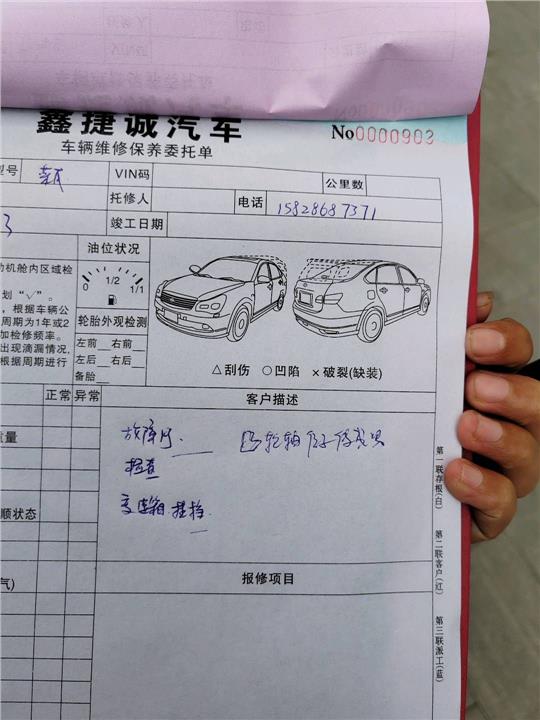 鑫捷诚汽车
No0000903
车辆维修保养委托单
型号
VIN码
公里数
托修人
电话 15828687371
3
竣工日期
油位状况
0 1/2 1/1
轮胎外观检测
左前 右前
左后 右后
备胎
△刮伤 ○凹陷 ×破裂(缺装)
动机舱内区域检
划“√”。
，根据车辆公
周期为1年或2
加检修频率。
出现滴漏情况，
根据周期进行
正常 异常
重量
顺状态
气)
客户描述
故障灯
检查
变速箱挂挡
报修项目
第一联存根(白)
第二联客户(红)
第三联派工(蓝)